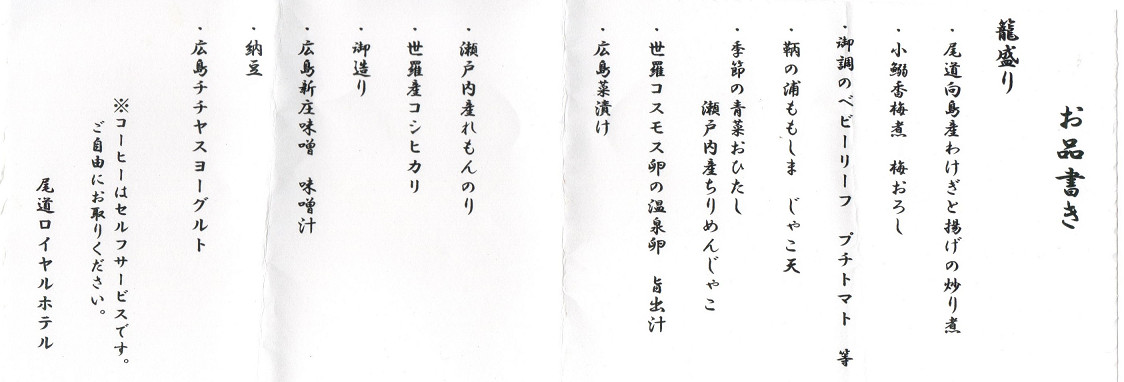 お品書き
籠盛り
・尾道向島産わけぎと揚げの炒り煮
・小鰯香梅煮　梅おろし
・御調のベビーリーフ　プチトマト　等
・鞆の浦ももしま　じゃこ天
・季節の青菜おひたし
瀬戸内産ちりめんじゃこ
・世羅コスモス卵の温泉卵　旨出汁
・広島菜漬け
・瀬戸内産れもんのり
・世羅産コシヒカリ
・御造り
・広島新庄味噌　味噌汁
・納豆
・広島チチヤスヨーグルト
※コーヒーはセルフサービスです。
ご自由にお取りください。
尾道ロイヤルホテル